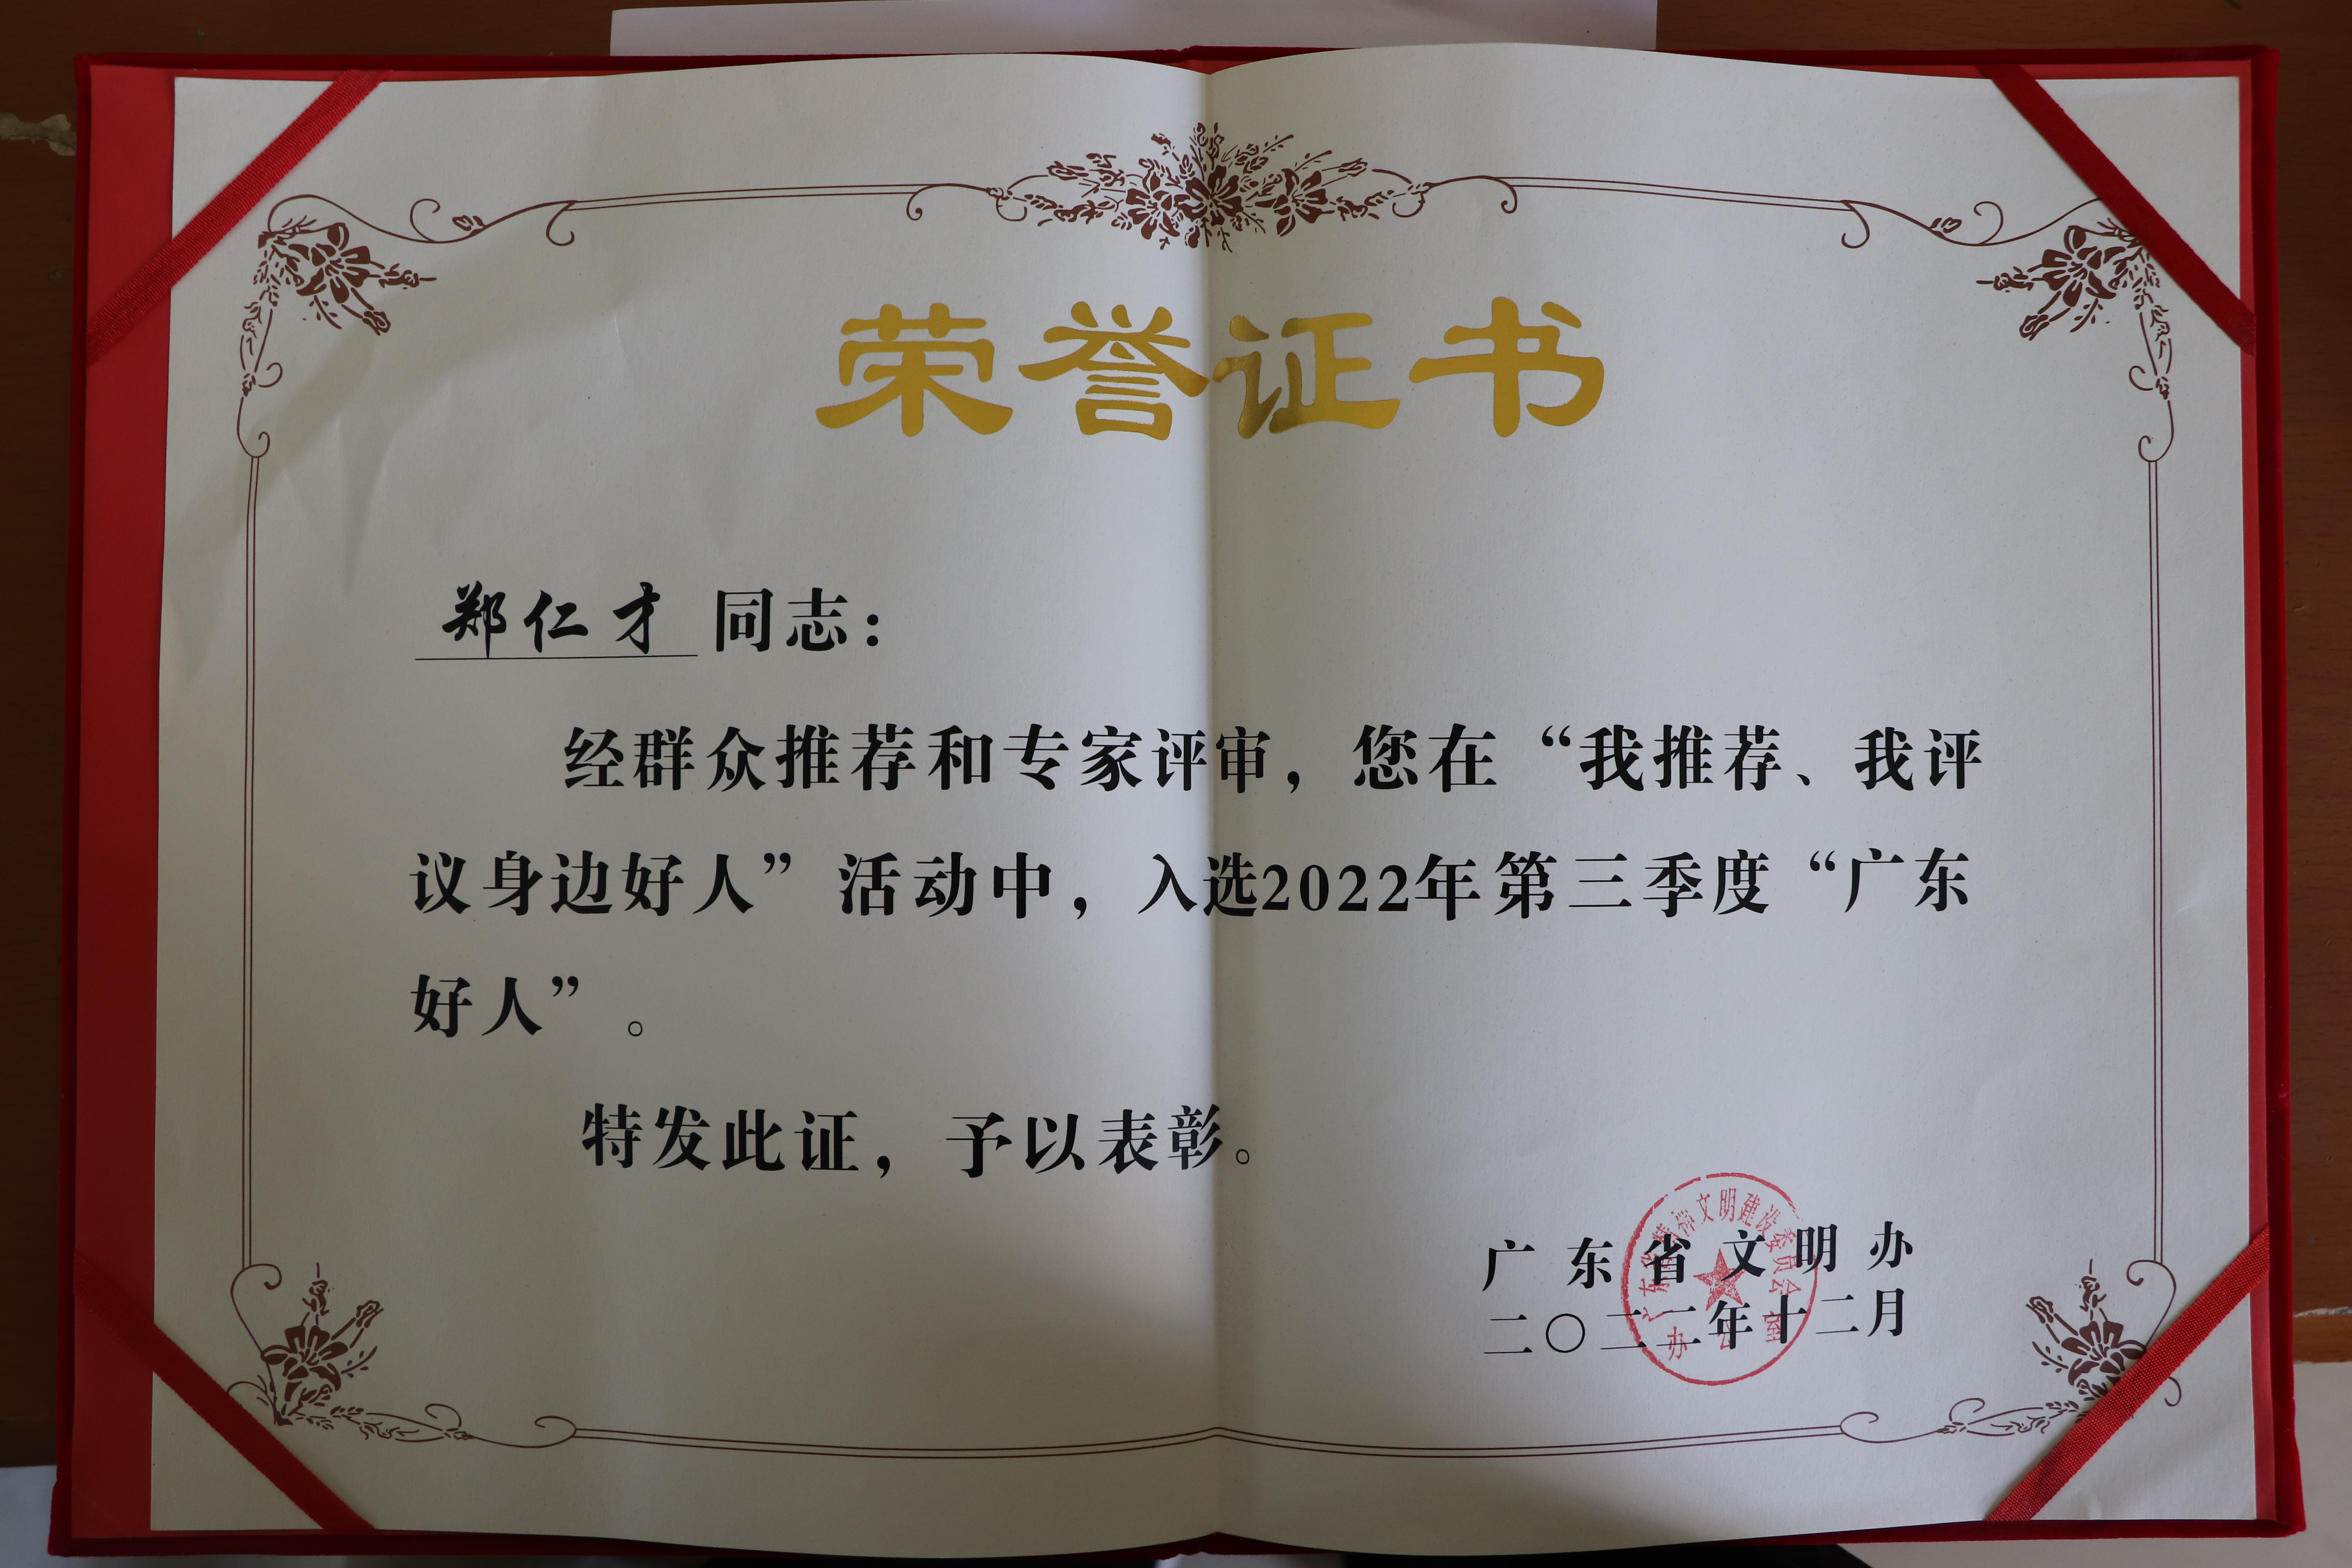 荣誉证书
郑仁才 同志：
经群众推荐和专家评审，您在“我推荐、我评
议身边好人”活动中，入选2022年第三季度“广东
好人”。
特发此证，予以表彰。
广东省文明办
二〇二二年十二月
广东省精神文明建设委员会
办公室